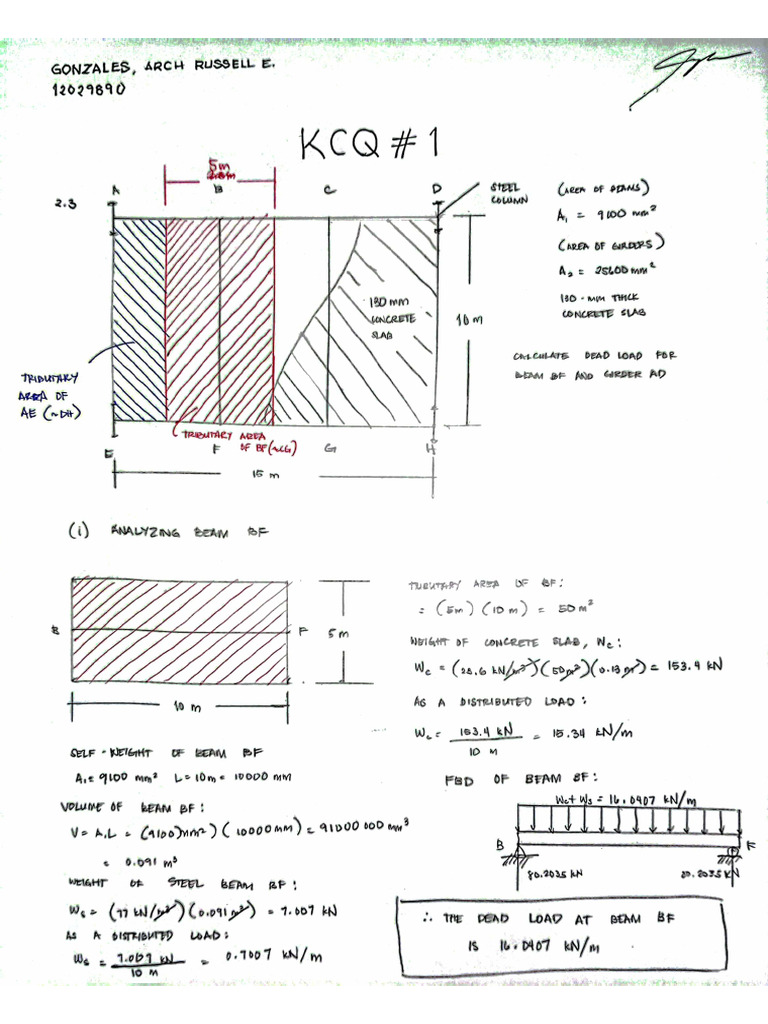 GONZALES, ARCH RUSSELL E.
12029890
KCQ # 1
5m
A
B
C
D
STEEL
COLUMN
2.3
(AREA OF BEAMS)
A₁ = 9100 mm²
(AREA OF GIRDERS)
A₂ = 25600 mm²
130-mm THICK
CONCRETE SLAB
130 mm
CONCRETE
SLAB
10 m
CALCULATE DEAD LOAD FOR
BEAM BF AND GIRDER AD
TRIBUTARY
AREA OF
AE (~DH)
TRIBUTARY AREA
OF BF (~CG)
E
F
G
H
15 m
(i) ANALYZING BEAM BF
B
F
5m
10 m
TRIBUTARY AREA OF BF:
= (5m) (10 m) = 50 m²
WEIGHT OF CONCRETE SLAB, Wc:
Wc = (23.6 kN/m³)(50m²)(0.13 m) = 153.4 kN
AS A DISTRIBUTED LOAD:
Wc = 153.4 kN / 10 m = 15.34 kN/m
SELF-WEIGHT OF BEAM BF
A₁= 9100 mm² L = 10m = 10000 mm
VOLUME OF BEAM BF:
V = A₁L = (9100)mm²) (10000mm) = 91000 000 mm³
= 0.091 m³
WEIGHT OF STEEL BEAM BF:
Ws = (77 kN/m³)(0.091 m³) = 7.007 kN
AS A DISTRIBUTED LOAD:
Ws = 7.007 kN / 10 m = 0.7007 kN/m
FBD OF BEAM BF:
Wc + Ws = 16.0407 kN/m
B
F
80.2035 kN
80.2035 kN
∴ THE DEAD LOAD AT BEAM BF
IS 16.0407 kN/m